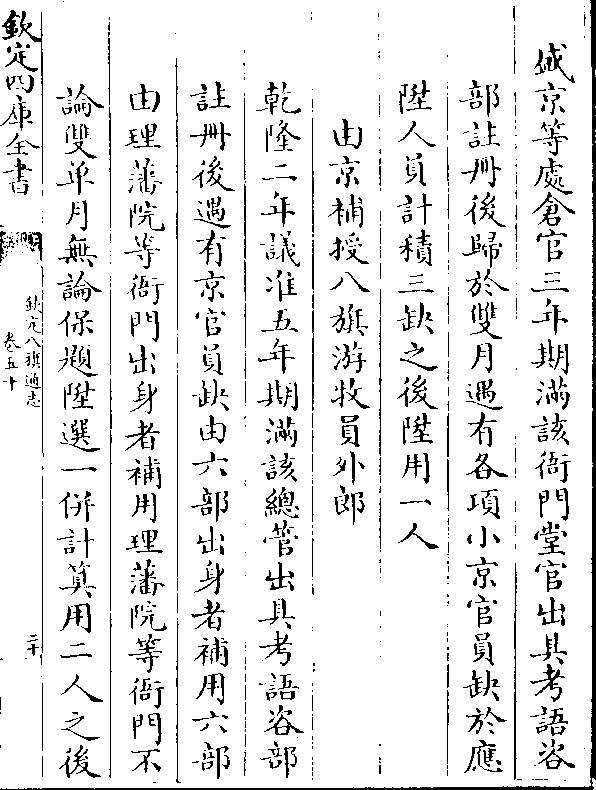 盛京等處倉官三年期滿該衙門堂官出具考語咨
部註冊後歸於雙月遇有各項小京官員缺於應
陞人員計積三缺之後陞用一人
由京補授八旗游牧員外郎
乾隆二年議准五年期滿該總管出具考語咨部
註冊後遇有京官員缺由六部出身者補用六部
由理藩院等衙門出身者補用理藩院等衙門不
論雙单月無論保題陞選一併計算用二人之後
欽定四庫全書
欽定八旗通志
卷五十
二十